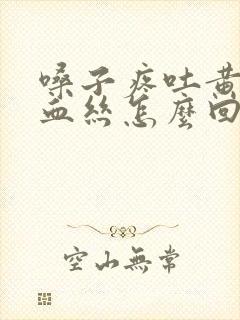 嗓子疼吐黃
血絲怎麼回
空山無常